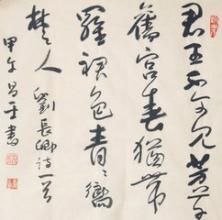 君王不可見芳草
舊宮春猶帶
羅裙色青〻嚮
楚人 劉長卿詩一首
甲午書